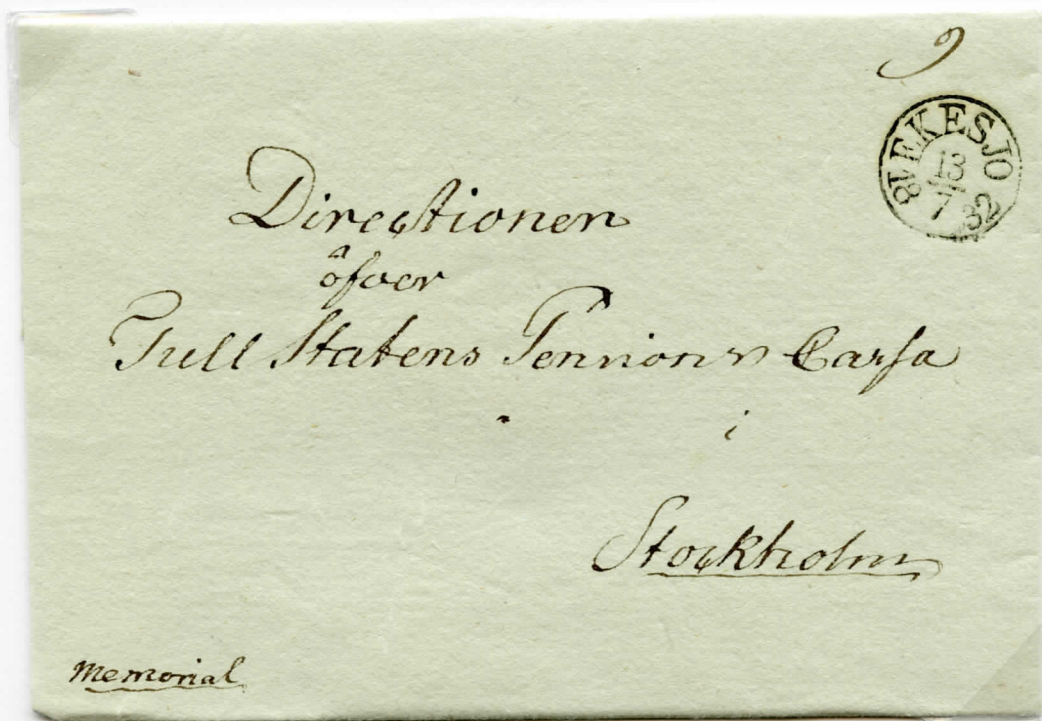 9
EKESJO
13
7
18 32
Directionen
öfver
Tull Statens Pensions Cassa
i
Stockholm
Memorial